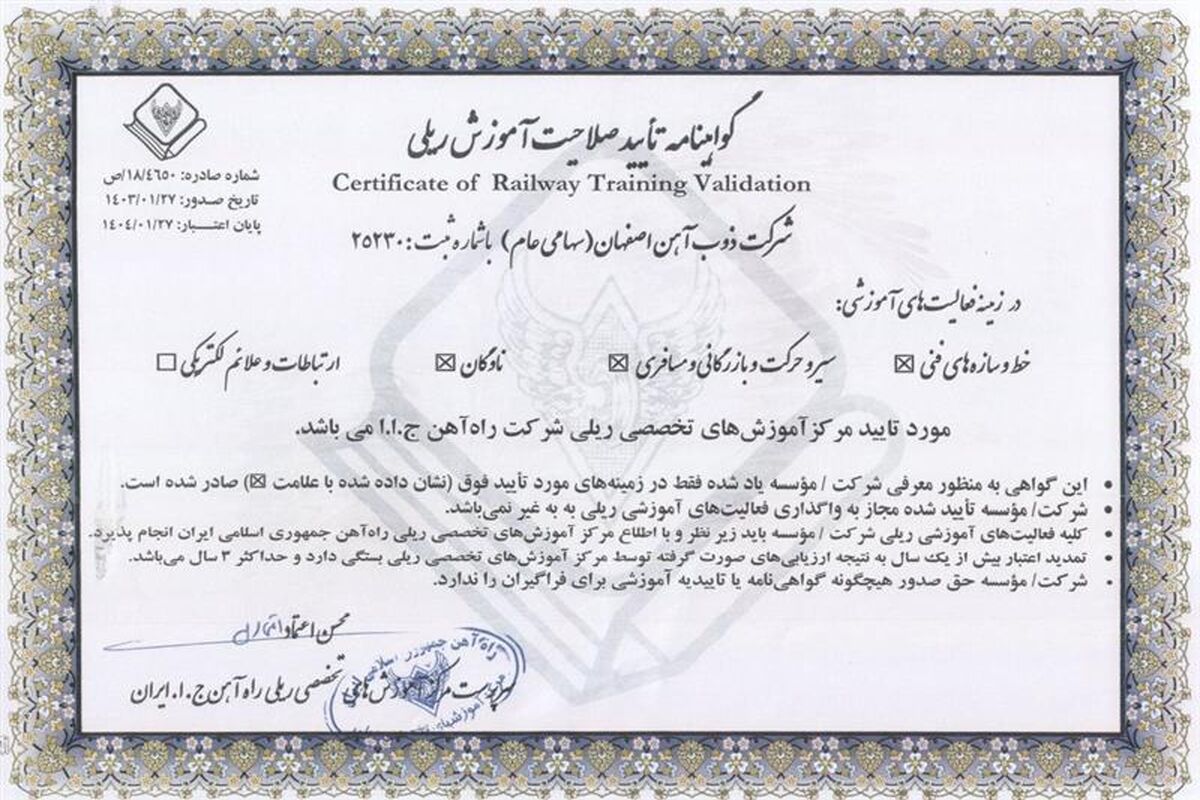 گواهینامه تأیید صلاحیت آموزش ریلی
Certificate of Railway Training Validation
شماره صادره: ۱۸/٤٦٥۰/ص
تاریخ صدور: ۱٤۰۳/۰۱/۲۷
پایان اعتبار: ۱٤۰٤/۰۱/۲۷
شرکت ذوب آهن اصفهان (سهامی عام) با شماره ثبت: ۲۵۲۳۰
در زمینه فعالیت‌های آموزشی:
خط و سازه‌های فنی ☒ سیر و حرکت و بازرگانی و مسافری ☒ ناوگان ☒ ارتباطات و علائم الکتریکی ☐
مورد تایید مرکز آموزش‌های تخصصی ریلی شرکت راه‌آهن ج.ا.ا می باشد.
• این گواهی به منظور معرفی شرکت / مؤسسه یاد شده فقط در زمینه‌های مورد تأیید فوق (نشان داده شده با علامت ☒) صادر شده است.
• شرکت/ مؤسسه تأیید شده مجاز به واگذاری فعالیت‌های آموزشی ریلی به به غیر نمی‌باشد.
• کلیه فعالیت‌های آموزشی ریلی شرکت / مؤسسه باید زیر نظر و با اطلاع مرکز آموزش‌های تخصصی ریلی راه‌آهن جمهوری اسلامی ایران انجام پذیرد.
• تمدید اعتبار بیش از یک سال به نتیجه ارزیابی‌های صورت گرفته توسط مرکز آموزش‌های تخصصی ریلی بستگی دارد و حداکثر ۳ سال می‌باشد.
• شرکت/ مؤسسه حق صدور هیچگونه گواهی‌نامه یا تاییدیه آموزشی برای فراگیران را ندارد.
محسن اعتماد
سرپرست مرکز آموزش‌های تخصصی ریلی راه آهن ج.ا.ایران
راه آهن جمهوری اسلامی